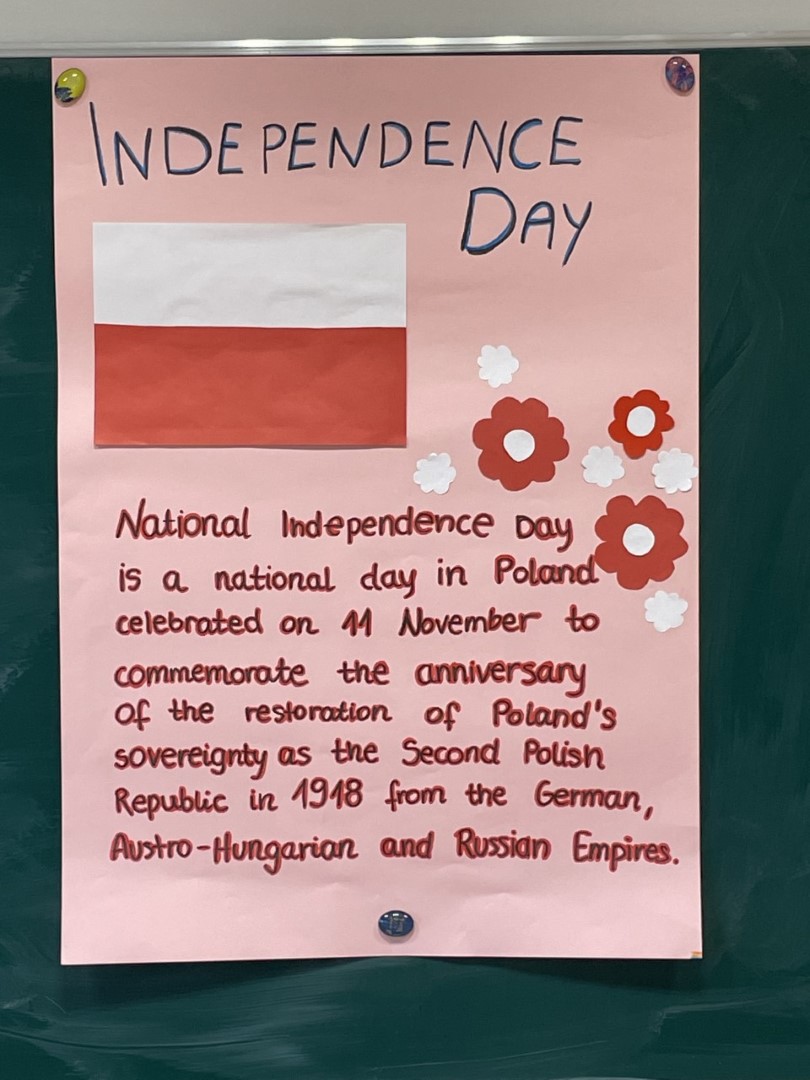 INDEPENDENCE
DAY
National Independence Day
is a national day in Poland
celebrated on 11 November to
commemorate the anniversary
of the restoration of Poland's
sovereignty as the Second Polish
Republic in 1918 from the German,
Austro-Hungarian and Russian Empires.